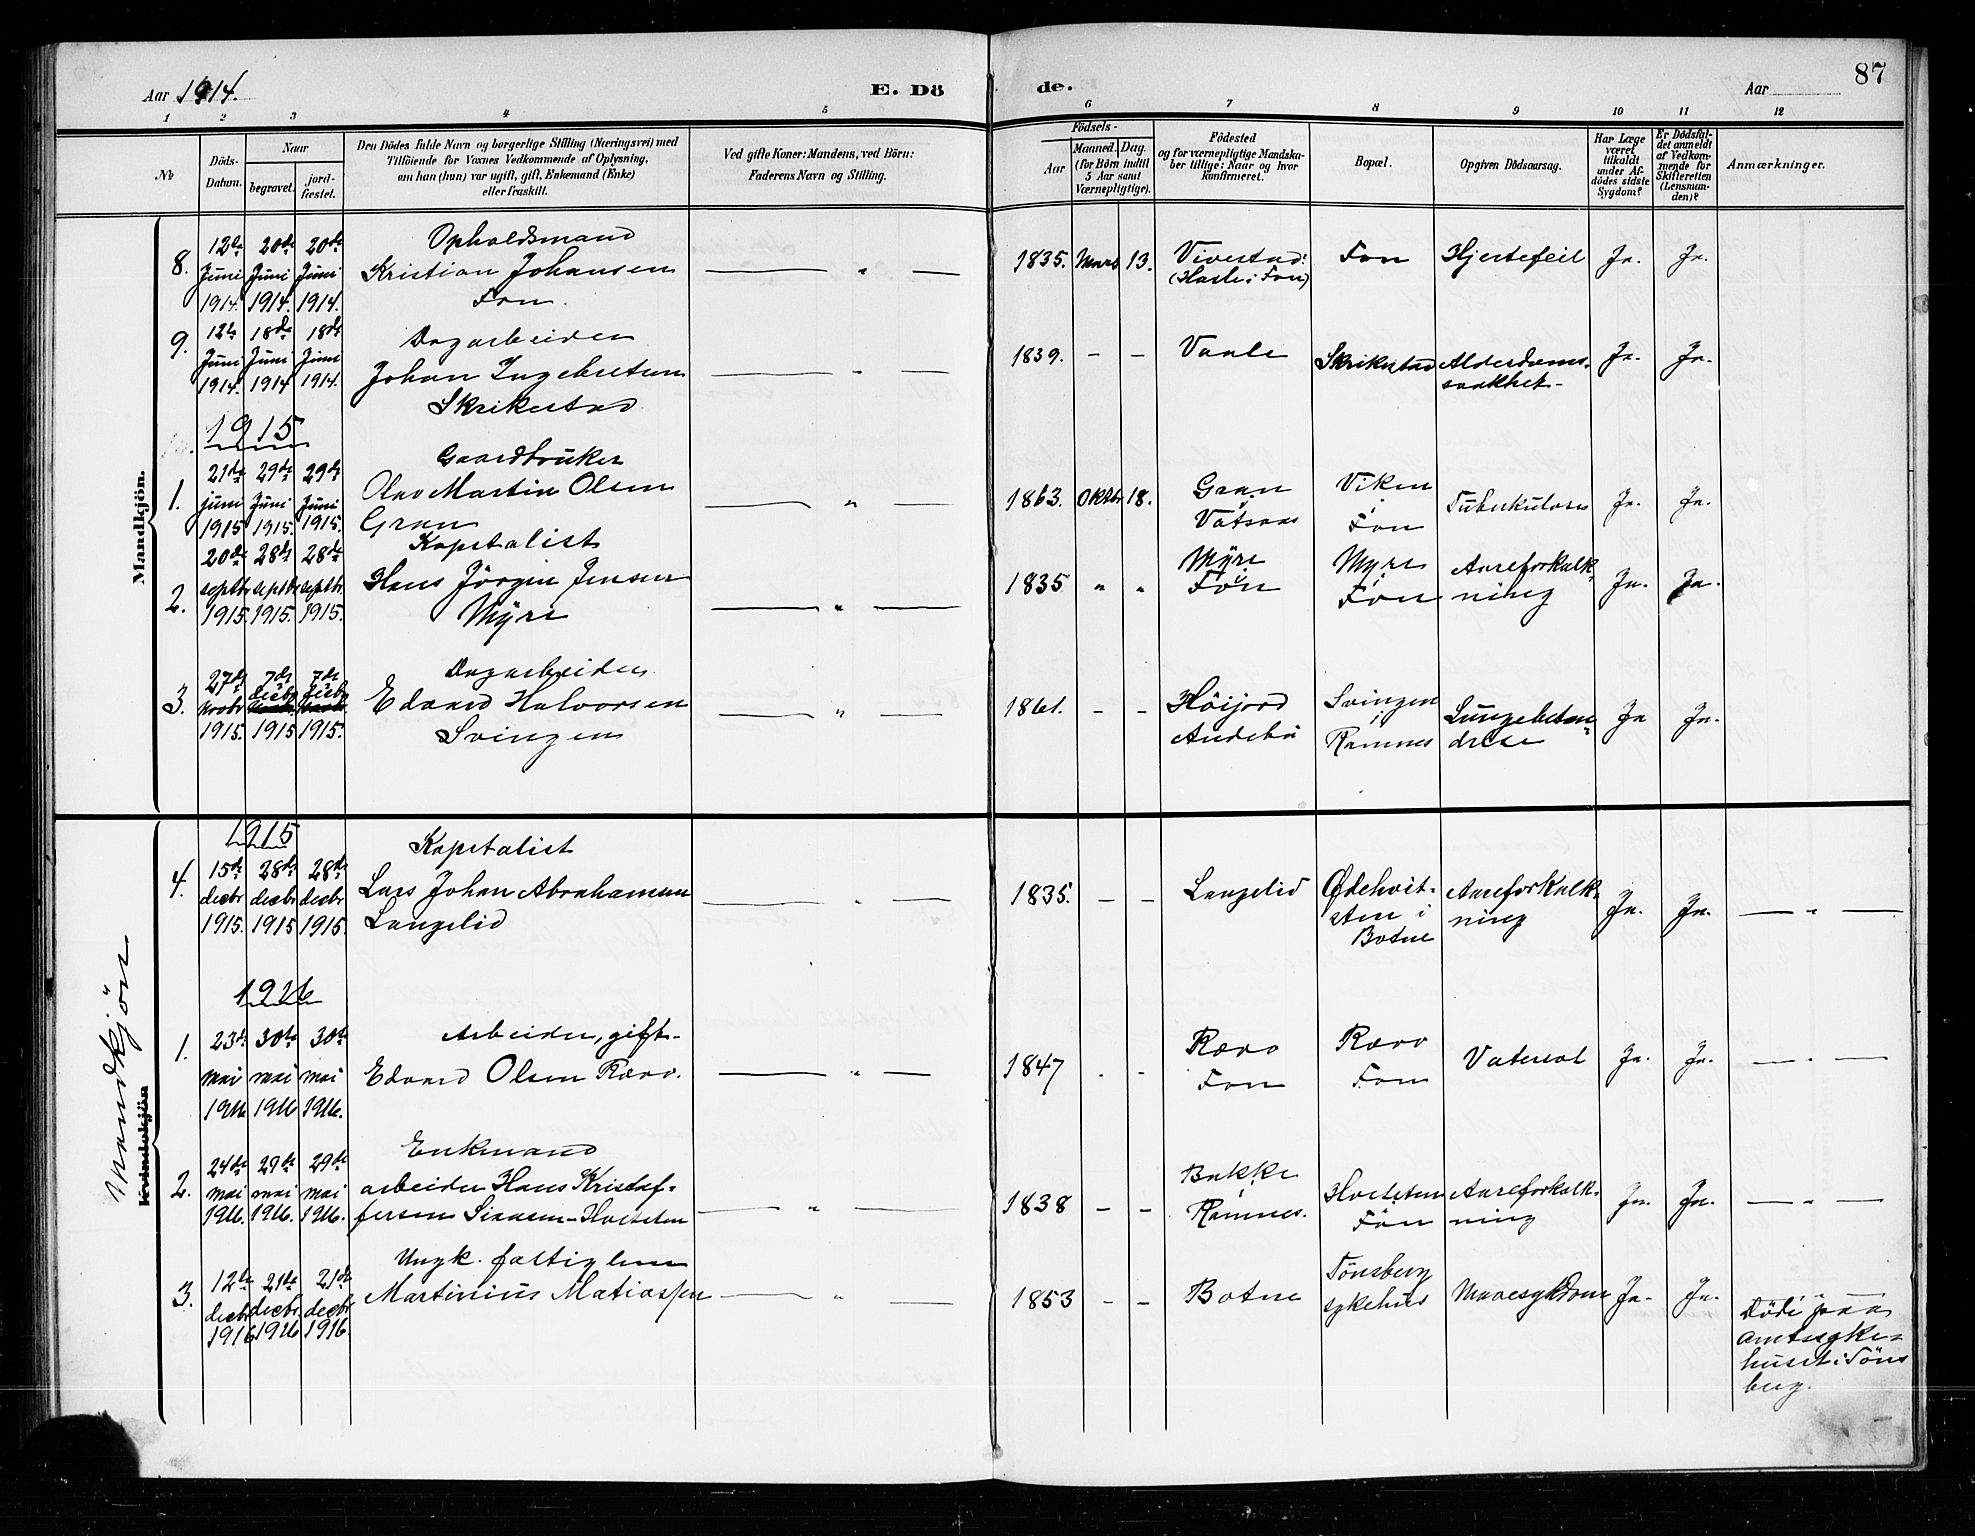 Aar 1914.
E. Dö de.
Aar
87
1 2 3 4 5 6 7 8 9 10 11 12
№
Döds-Datum.
Naar
begravet.
jord-fæstet.
Den Dödes fulde Navn og borgerlige Stilling (Næringsvei) med
Tilföiende for Voxnes Vedkommende af Oplysning,
om han (hun) var ugift, gift, Enkemand (Enke)
eller fraskilt.
Ved gifte Koner: Mandens, ved Börn:
Faderens Navn og Stilling.
Födsels-
Aar
Maaned. Dag.
(for Börn indtil
5 Aar samt
Værnepligtige).
Födested
og for værnepligtige Mandska-
ber tillige: Naar og hvor
konfirmeret.
Bopæl.
Opgiven Dödsaarsag.
Har Læge
været
tilkaldt
under Af-
dödes sidste
Sygdom?
Er Dödsfal-
det anmeldt
af Vedkom-
mende for
Skifteretten
(Lensman-
den)?
Anmærkninger.
Mandkjön.
8. 12te Juni 1914. 20de Juni 1914. 20de Juni 1914.
Opholdsmand
Kristian Johansen
Fon.
— " —
1835. Mars 13. Vivestad: (Hasle i Fon) Fon Hjertefeil Ja. Ja.
9. 12te Juni 1914. 18de Juni 1914 18de Juni 1914.
Dagarbeider
Johan Ingebretsen
Skrikestad
— " —
1839. – – Vaale Skrikestad Alderdoms-svakhet- Ja. Ja.
1915
1. 21de juni 1915 29de Juni 1915. 29de Juni 1915.
Gaardbruker
Olav Martin Olsen
Gran
— " —
1863. Oktbr 18. Gran i Vatsaas Viken i Fon Tuberkulose Ja. Ja.
2. 20de septbr 1915. 28de septbr 1915. 28de septbr. 1915.
Kapitalist
Hans Jörgen Jensen
Myre
— " —
1835 " " Myre Fon Myre i Fon Aareforkalk-ning Ja. Ja.
3. 27de Novbr 1915. 7de decbr 1915 7de decbr 1915.
Dagarbeider
Edvard Halvorsen
Svingen
— " —
1861. – – Höijord Andebu Svingen i Ramnes Lungebetæn-delse Ja Ja.
Mandkjön
Kvindekjön
1915
4. 15de decbr 1915. 28de decbr 1915 28de decbr 1915.
Kapitalist
Lars Johan Abrahamsen
Langelid
— " —
1835. – – Langelid Ødehvit-sten i Botne Aareforkalk-ning Ja. Ja. — " —
1916
1. 23de mai 1916. 30te mai 1916 30te mai 1916.
Arbeider, gift-
Edvard Olsen Rævo.
— " —
1847 - - Rævo Fon Rævo Fon Vatersot Ja. Ja. — " —
2. 24de mai 1916. 29de mai 1916. 29de mai 1916.
Enkemand
arbeider Hans Kristof-
fersen Simasen-Hvitsten
— " —
1838 – – Bakke i Ramnes. Hvitsten Fon Aareforkalk-ning Ja. Ja. — " —
3. 12te decbr 1916 21de decbr. 1916 21de decbr 1916.
Ungk. fattiglem
Martinius Matiassen
— " —
1853 – – Botne Tönsberg sykehus Mavesykdom Ja. Ja. — " —
Döde paa
amtssyke-
huset i Töns
berg.